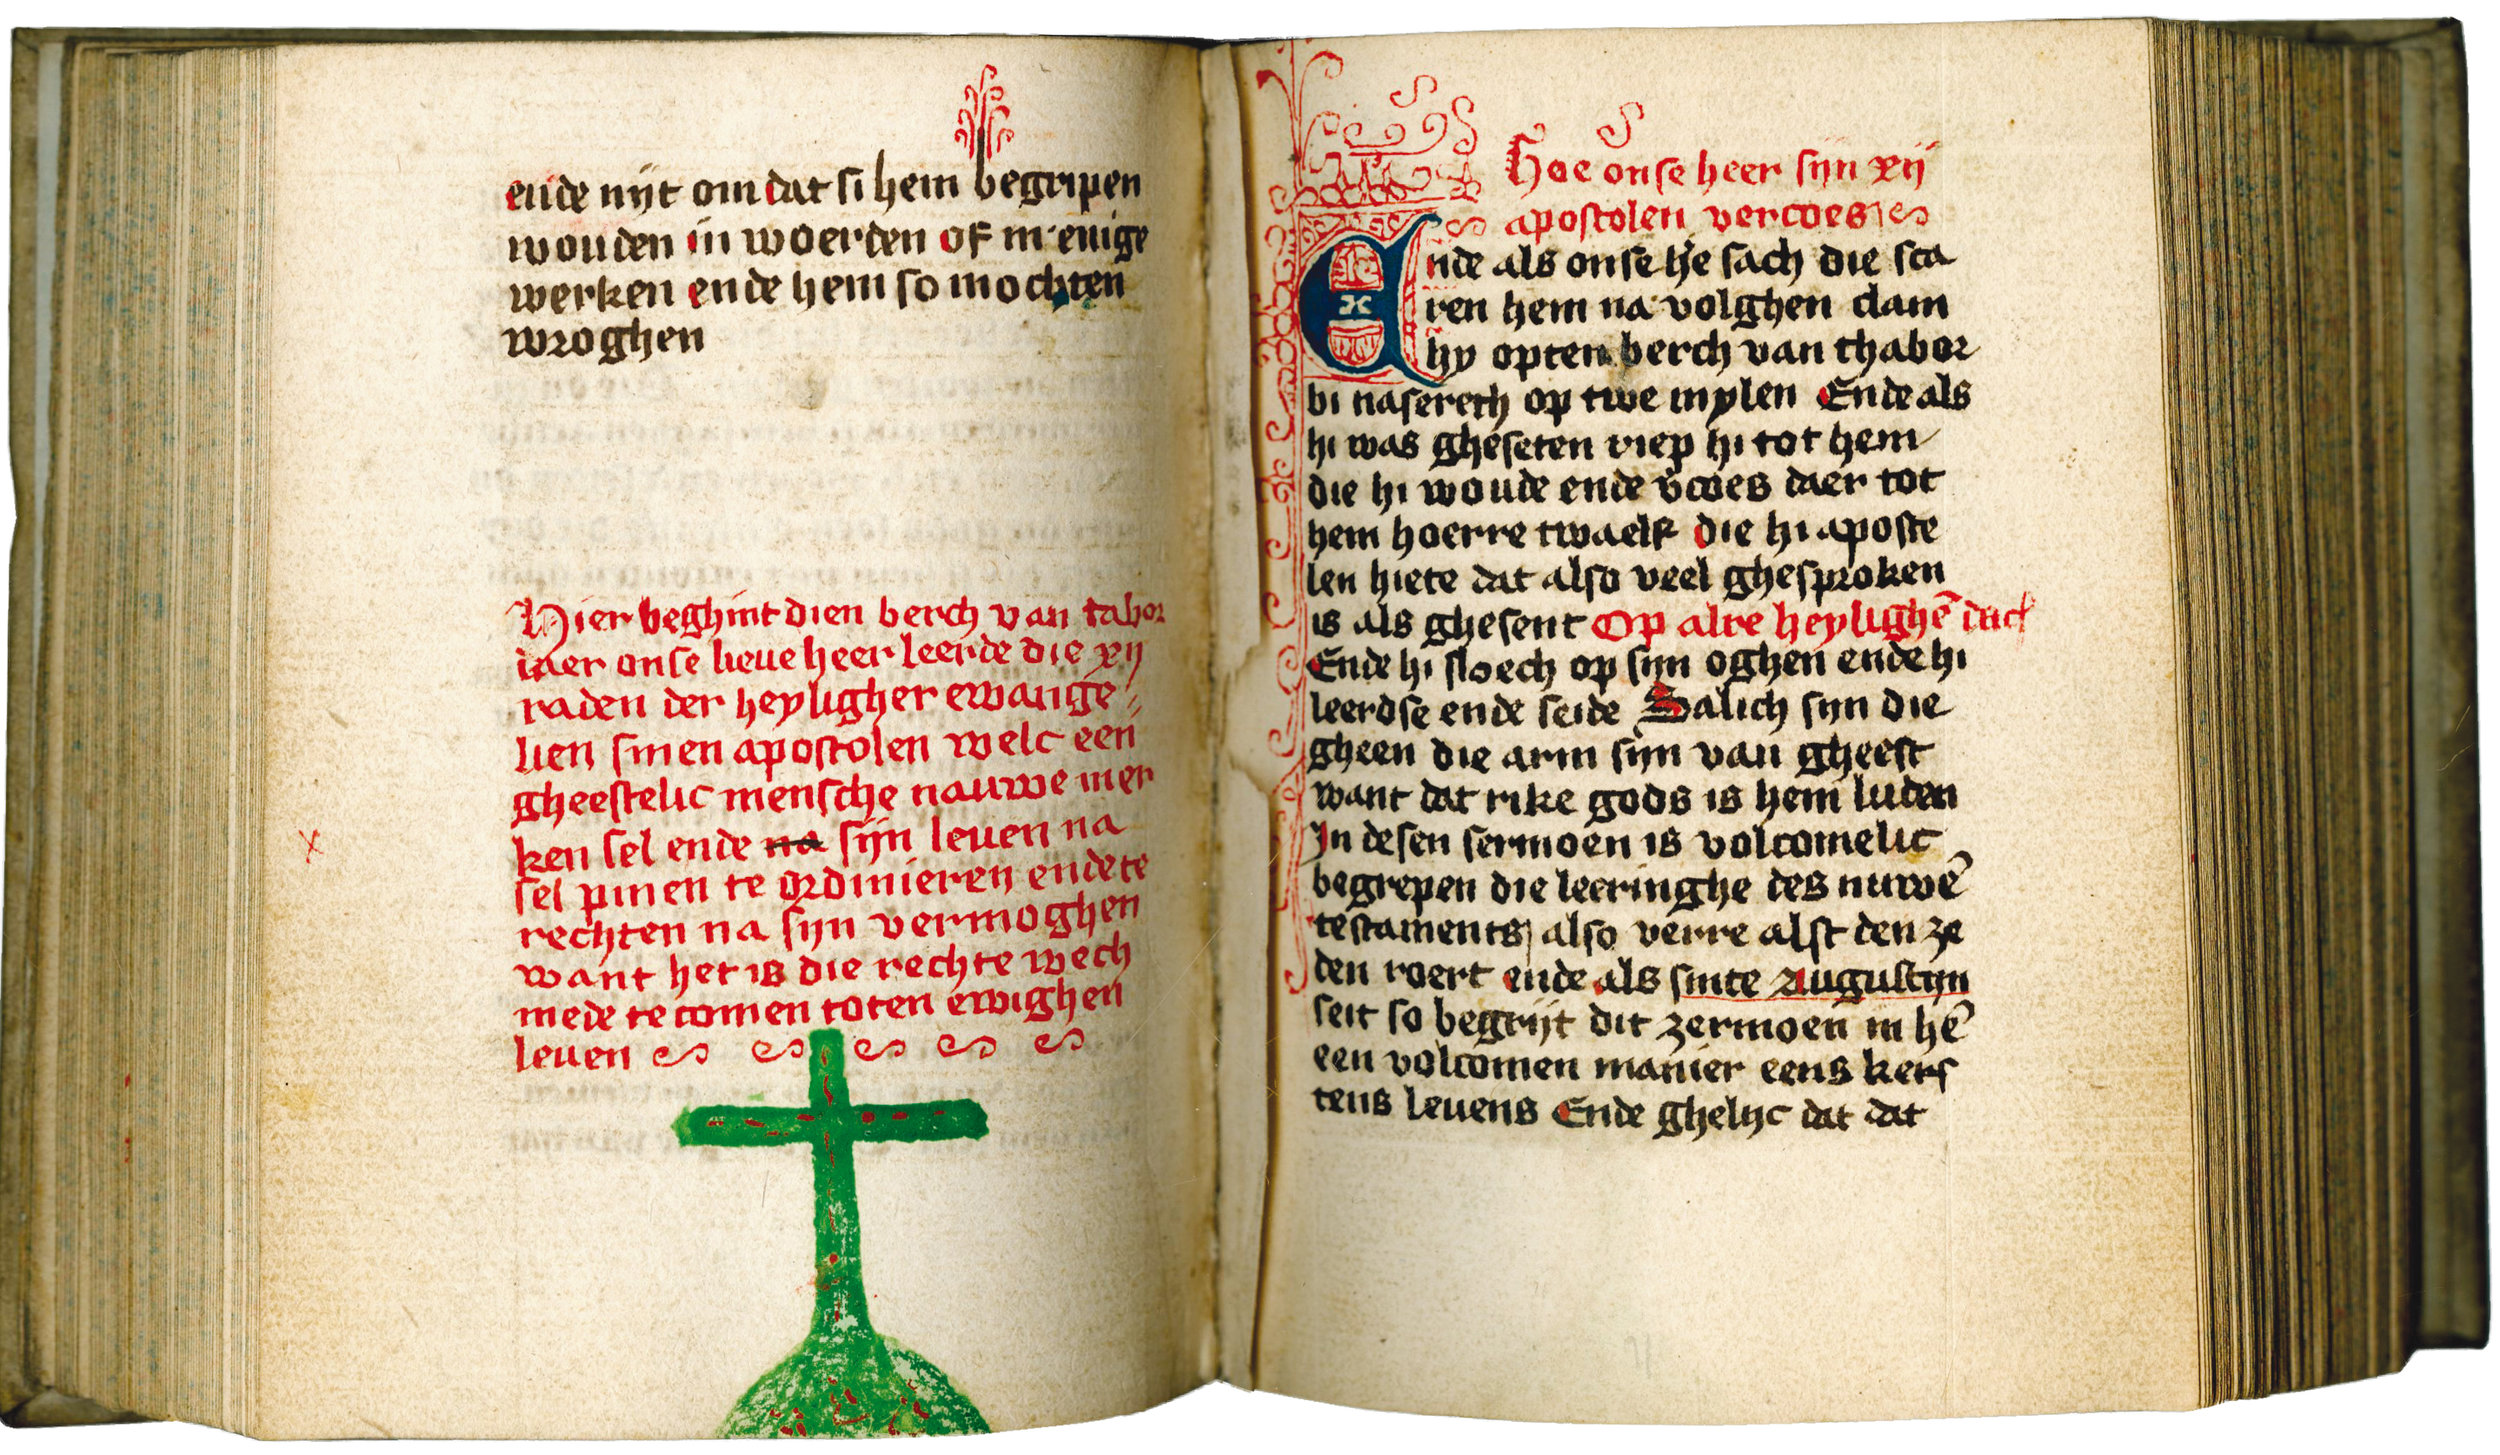 ende nyt om dat si hem begripen
wouden in woerden of in enige
werken ende hem so mochten
wroghen
Hier beghint dien berch van tabor
daer onse lieue heer leerde die xij
raden der heyligher ewange
lien sinen apostolen welc een
gheestelic mensche nauwe mer
ken sel ende na sijn leuen na
sel pinen te ordinieren ende te
rechten na sijn vermoghen
want het is die rechte wech
mede te comen toten ewighen
leuen
Hoe onse heer sijn xij
apostolen vercoes
Ende als onse he sach die sca
ren hem na volghen clam
hy opten berch van thabor
bi nasereth op twe mylen Ende als
hi was gheseten riep hi tot hem
die hi woude ende v̄coes daer tot
hem hoerre twaelf die hi aposte
len hiete dat also veel ghesproken
is als ghesent Op alre heylighē dach
Ende hi sloech op sijn oghen ende hi
leerdse ende seide Salich sijn die
gheen die arm sijn van gheest
want dat rike gods is hem luden
In desen sermoen is volcomelic
begrepen die leeringhe des nuwē
testaments also verre alst den ze
den roert ende als sinte augustijn
seit so begrijt dit zermoen in hē
een volcomen manier eens kers
tens leuens Ende ghelijc dat dat